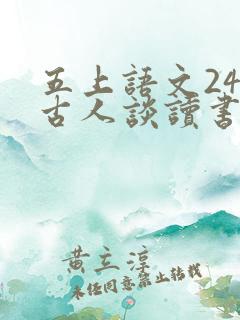 五上語文24
古人談讀書
黄立淳
未經同意禁止轉載